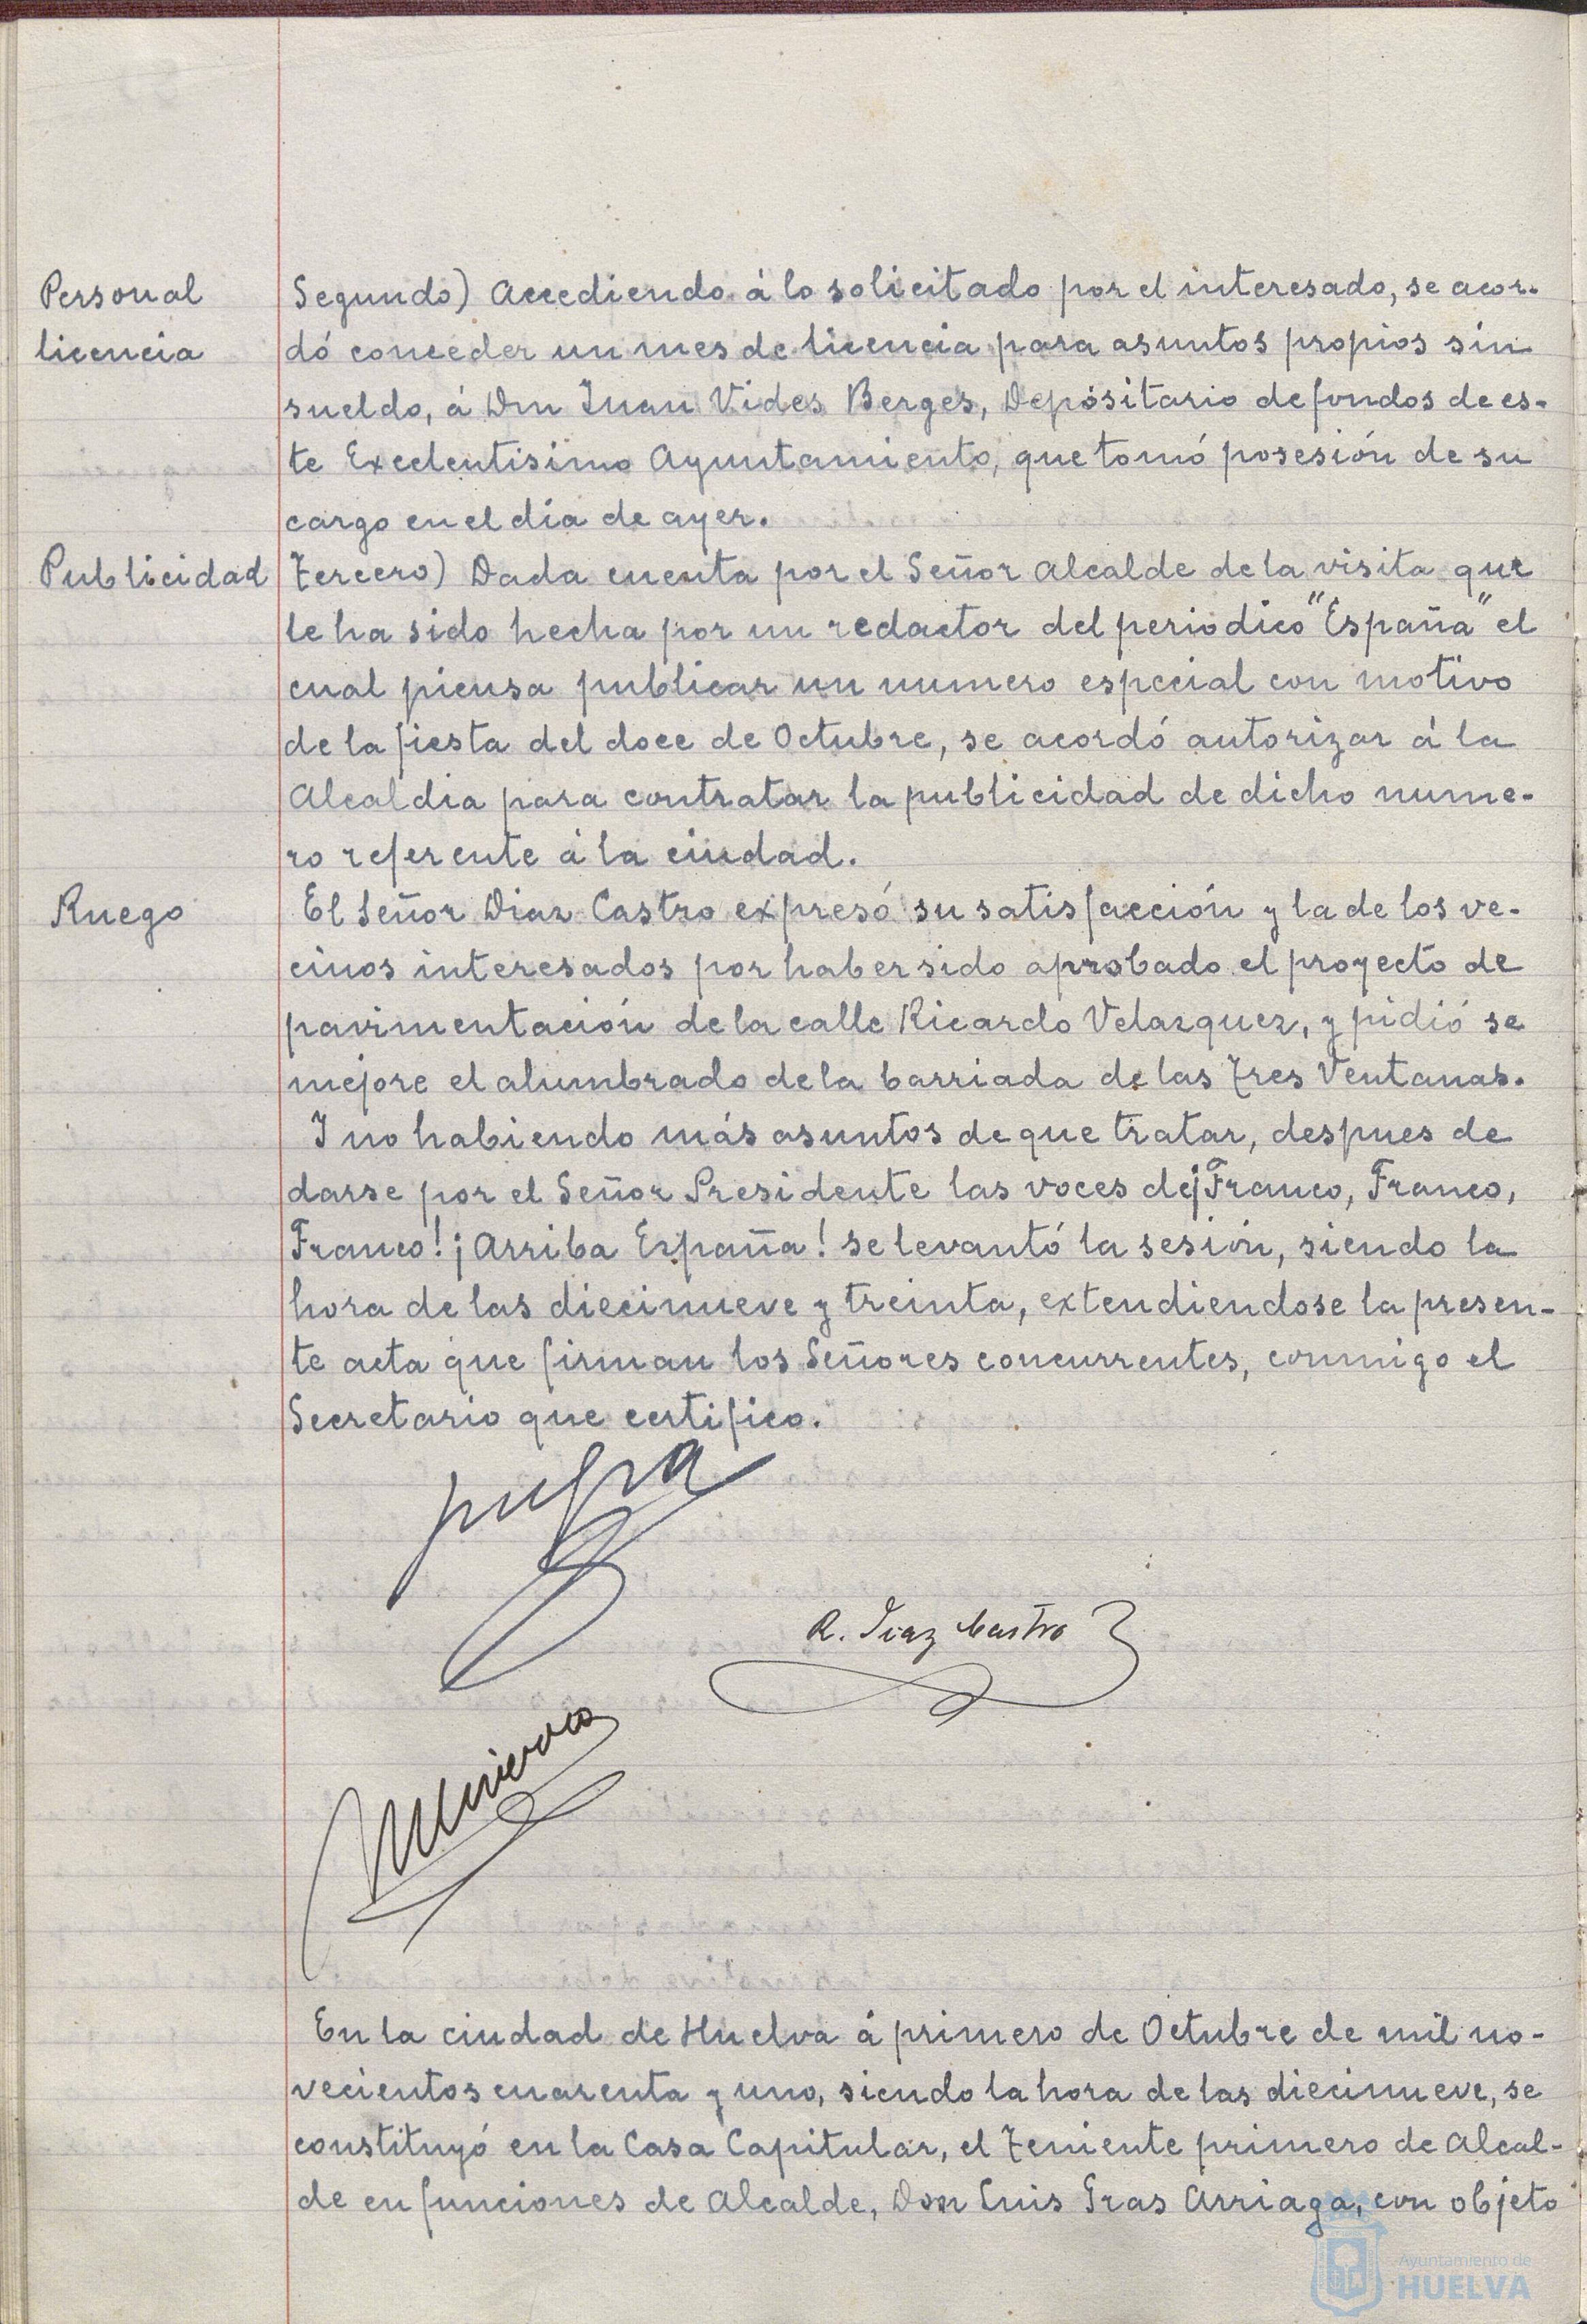 Personal
licencia
Segundo) Accediendo á lo solicitado por el interesado, se acor-
dó conceder un mes de licencia para asuntos propios sin
sueldo, á Don Juan Vides Berges, Depósitario de fondos de es-
te Excelentisimo Ayuntamiento, que tomó posesión de su
cargo en el día de ayer.
Publicidad
Tercero) Dada cuenta por el Señor Alcalde de la visita que
le ha sido hecha por un redactor del periodico "España" el
cual piensa publicar un numero especial con motivo
de la fiesta del doce de Octubre, se acordó autorizar á la
Alcaldia para contratar la publicidad de dicho nume-
ro referente á la ciudad.
Ruego
El Señor Diaz Castro expresó su satisfacción y la de los ve-
cinos interesados por haber sido aprobado el proyecto de
pavimentación de la calle Ricardo Velazquez, y pidió se
mejore el alumbrado de la barriada de las Tres Ventanas.
Y no habiendo más asuntos de que tratar, despues de
darse por el Señor Presidente las voces de ¡Franco, Franco,
Franco! ¡Arriba España! se levantó la sesión, siendo la
hora de las diecinueve y treinta, extendiendose la presen-
te acta que firman los Señores concurrentes, conmigo el
Secretario que certifico.
R. Diaz Castro
En la ciudad de Huelva á primero de Octubre de mil no-
vecientos cuarenta y uno, siendo la hora de las diecinueve, se
constituyó en la Casa Capitular, el Teniente primero de Alcal-
de en funciones de Alcalde, Don Luis Gras Arriaga, con objeto
Ayuntamiento de
HUELVA